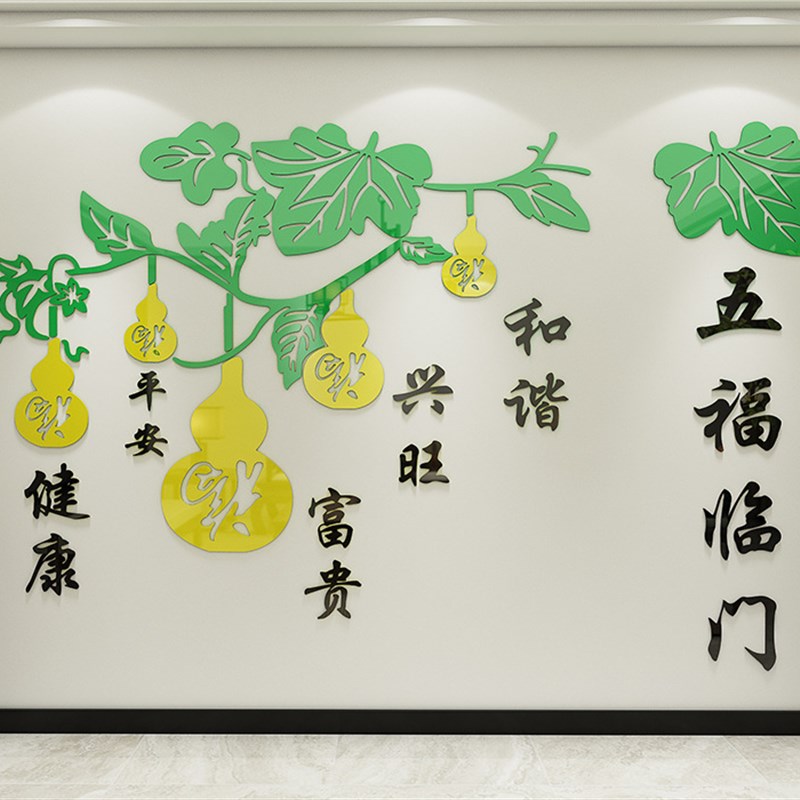 健康
平安
富贵
兴旺
和谐
五福临门